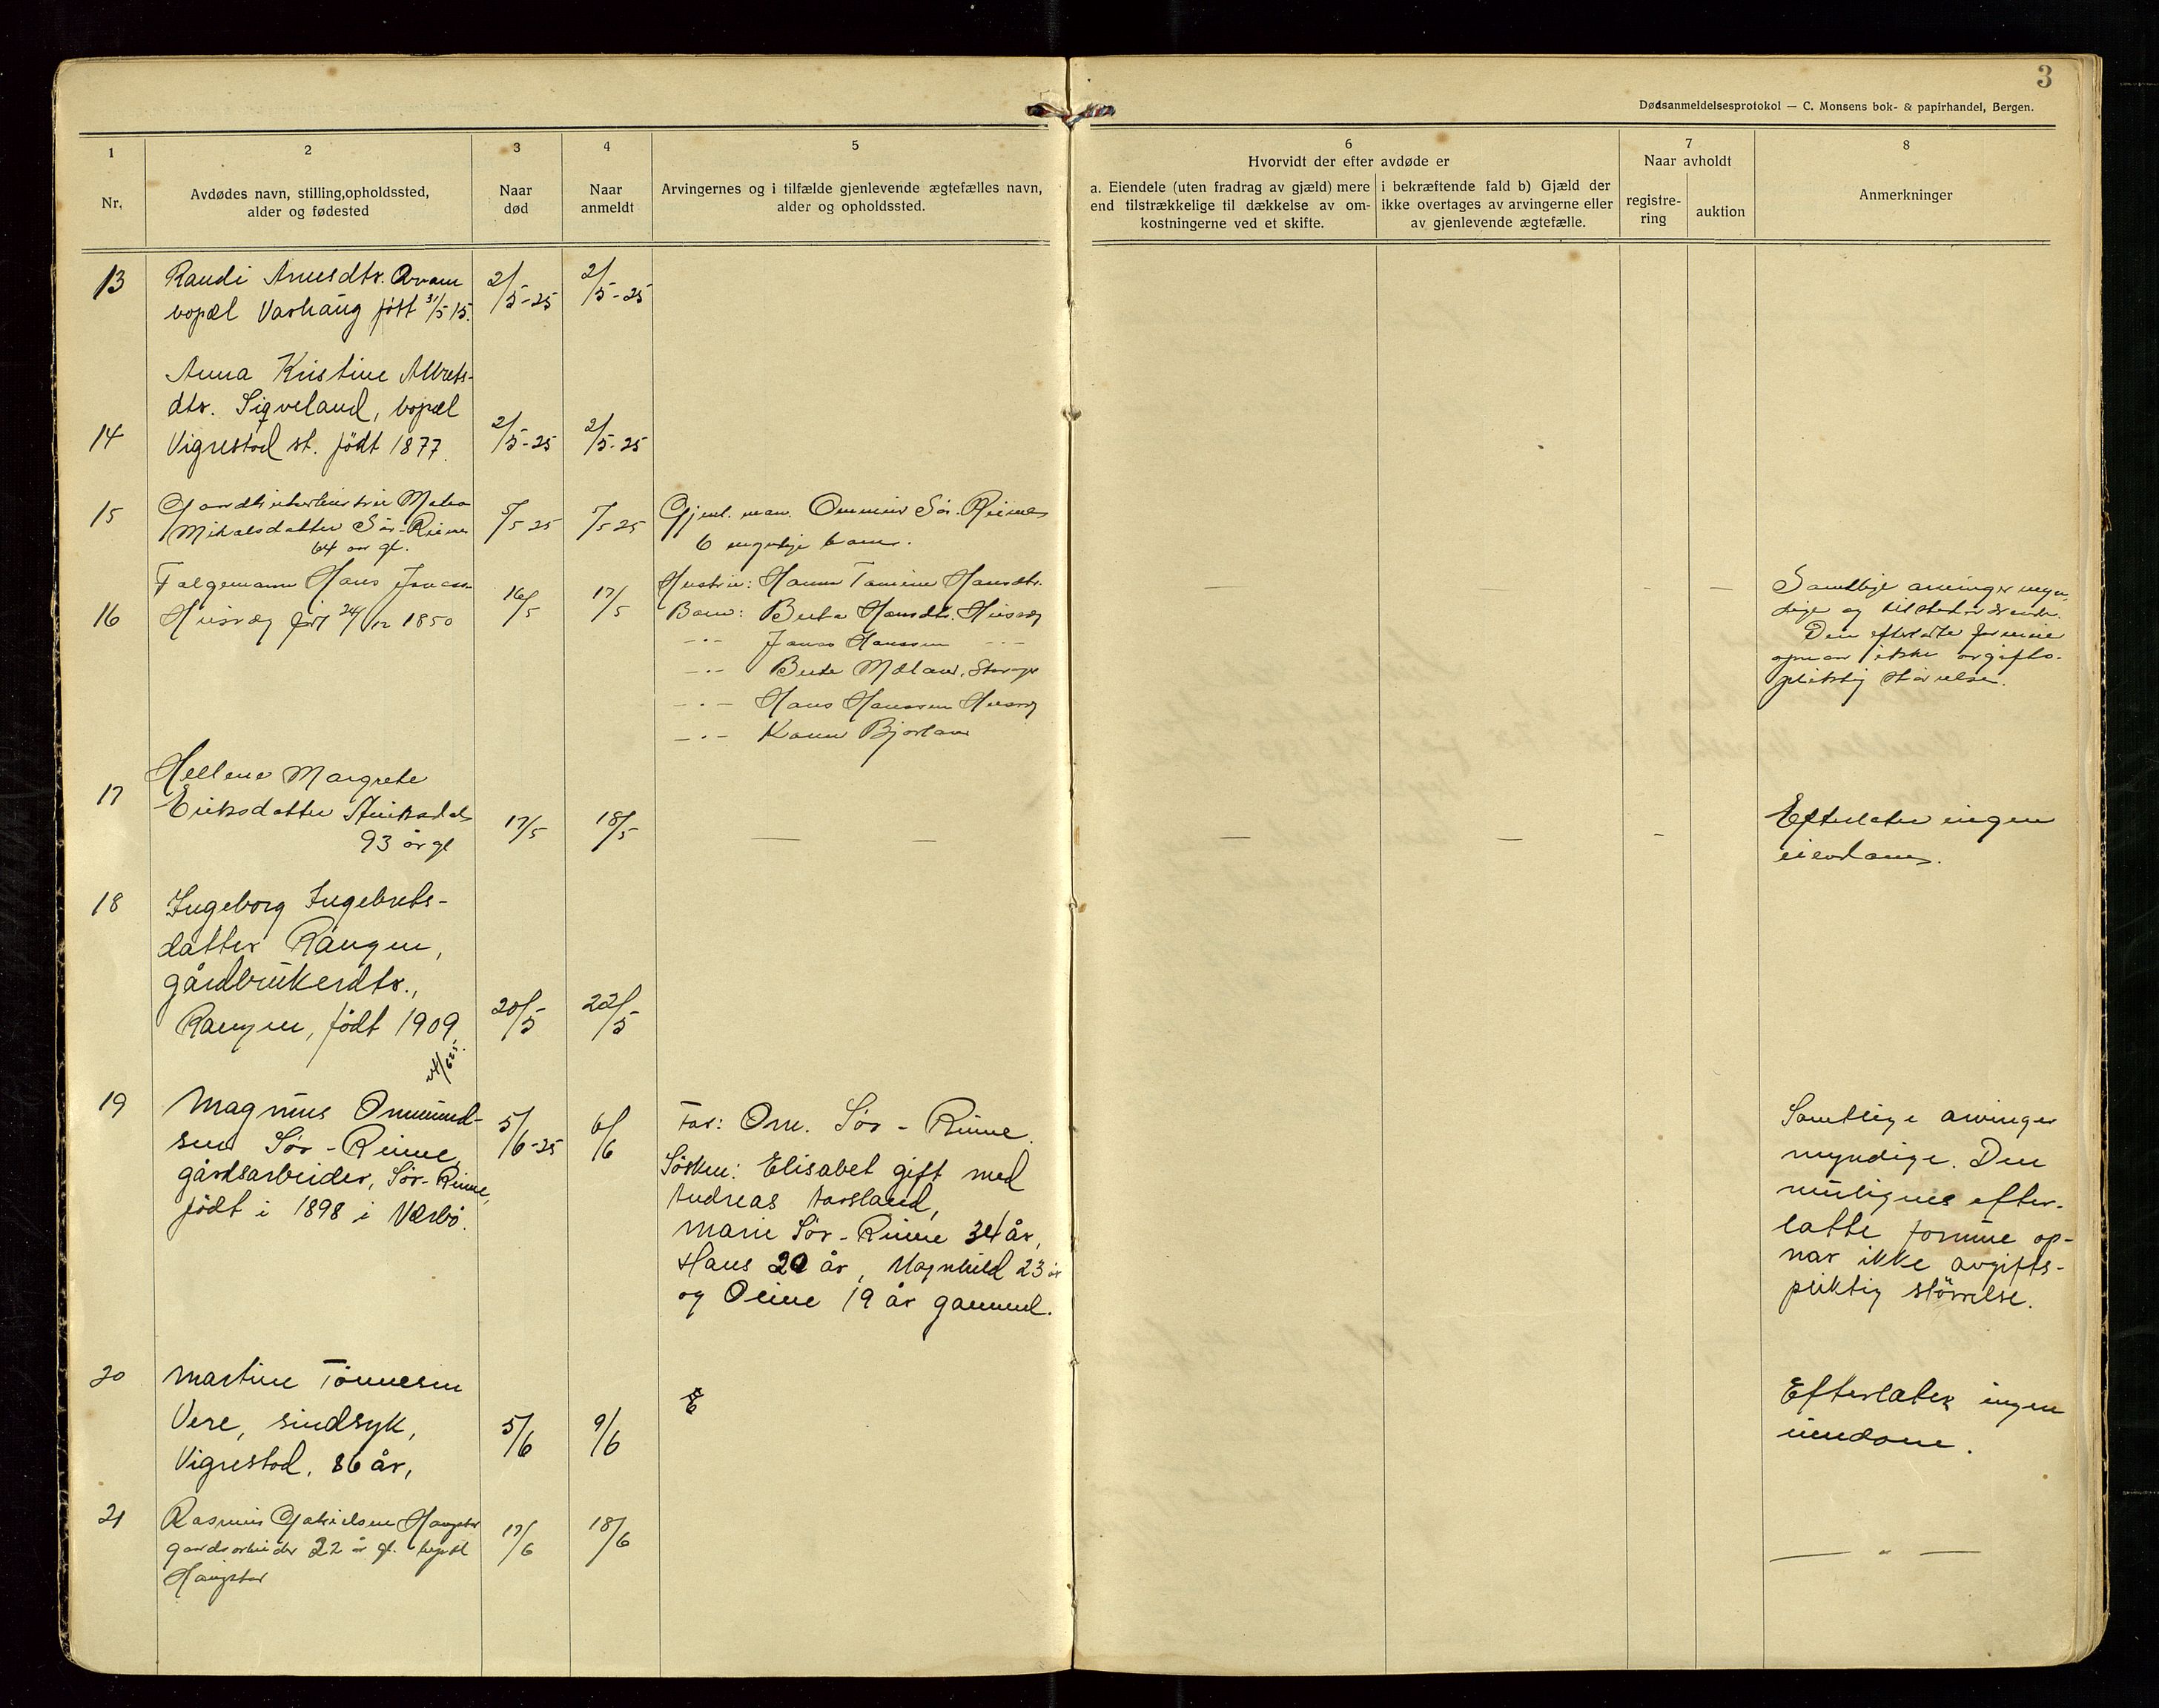 3
Dødsanmeldelsesprotokol — C. Monsens bok- & papirhandel, Bergen.
1
Nr.
2
Avdødes navn, stilling,opholdssted,
alder og fødested
3
Naar
død
4
Naar
anmeldt
5
Arvingernes og i tilfælde gjenlevende ægtefælles navn,
alder og opholdssted.
6
Hvorvidt der efter avdøde er
a. Eiendele (uten fradrag av gjæld) mere
end tilstrækkelige til dækkelse av om-
kostningerne ved et skifte.
i bekræftende fald b) Gjæld der
ikke overtages av arvingerne eller
av gjenlevende ægtefælle.
7
Naar avholdt
registre-
ring
auktion
8
Anmerkninger
13
Randi Arnesdtr. Kvam
bopæl Varhaug født 31/5 15.
2/5-25
2/5-25
14
Anna Kristine Albrets-
dtr. Sigveland, bopæl
Vigrestad st. født 1877.
2/5-25
2/5-25
15
Mikalsdatter Sør-Rime
64 aar gl.
5/5 25
7/5 25
Gjenl. man. Ommund Sør-Rime
6 myndige barn.
16
Hans
født 24/12 1850
16/5
17/5
Hustru: Hanna Hansdtr.
Barn: Berta Hansdtr.
-"- Jonas Hanssen -"-
-"- Mæland,
-"- Hans Hanssen
-"-
Samtlige arvinger myn-
dige og tilstedeværende.
Den efterlatte formue
opnaar ikke avgifts-
pliktig størrelse.
17
Hellene Margrete
Eriksdatter
93 år gl
17/5
18/5
Efterlater ingen
eiendom.
18
Ingeborg Ingebrets-
datter Rangen,
gårdbrukerdtr.,
Rangen, født 1909
20/5
22/5
19
Magnus Ommund-
sen Sør-Rime,
gårdsarbeider, Sør-Rime,
født i 1898 i Nærbø.
5/6-25
6/6
Far: Om. Sør-Rime.
Søsken: Elisabet gift med
Andreas Aarsland,
Marie Sør-Rime 34 år,
Hans 20 år, Magnhild 23 år
og 19 år gammel.
Samtlige arvinger
myndige. Den
muligens efter-
latte formue op-
når ikke avgifts-
pliktig størrelse.
20
Martine Tønnesen
Vere, sindsyk,
Vigrestad, 86 år,
5/6
9/6
E
Efterlater ingen
eiendom.
21
Rasmus Gabrielsen
gaardsarbeider 22 år gl. bopæl
17/6
18/6
— " —